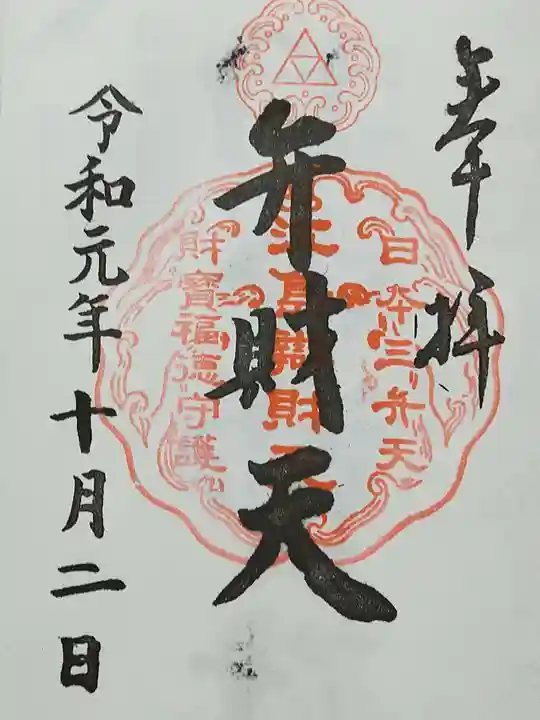 奉拝
日本三弁天
江島辨財天
財寶福徳守護
弁財天
令和元年十月二日